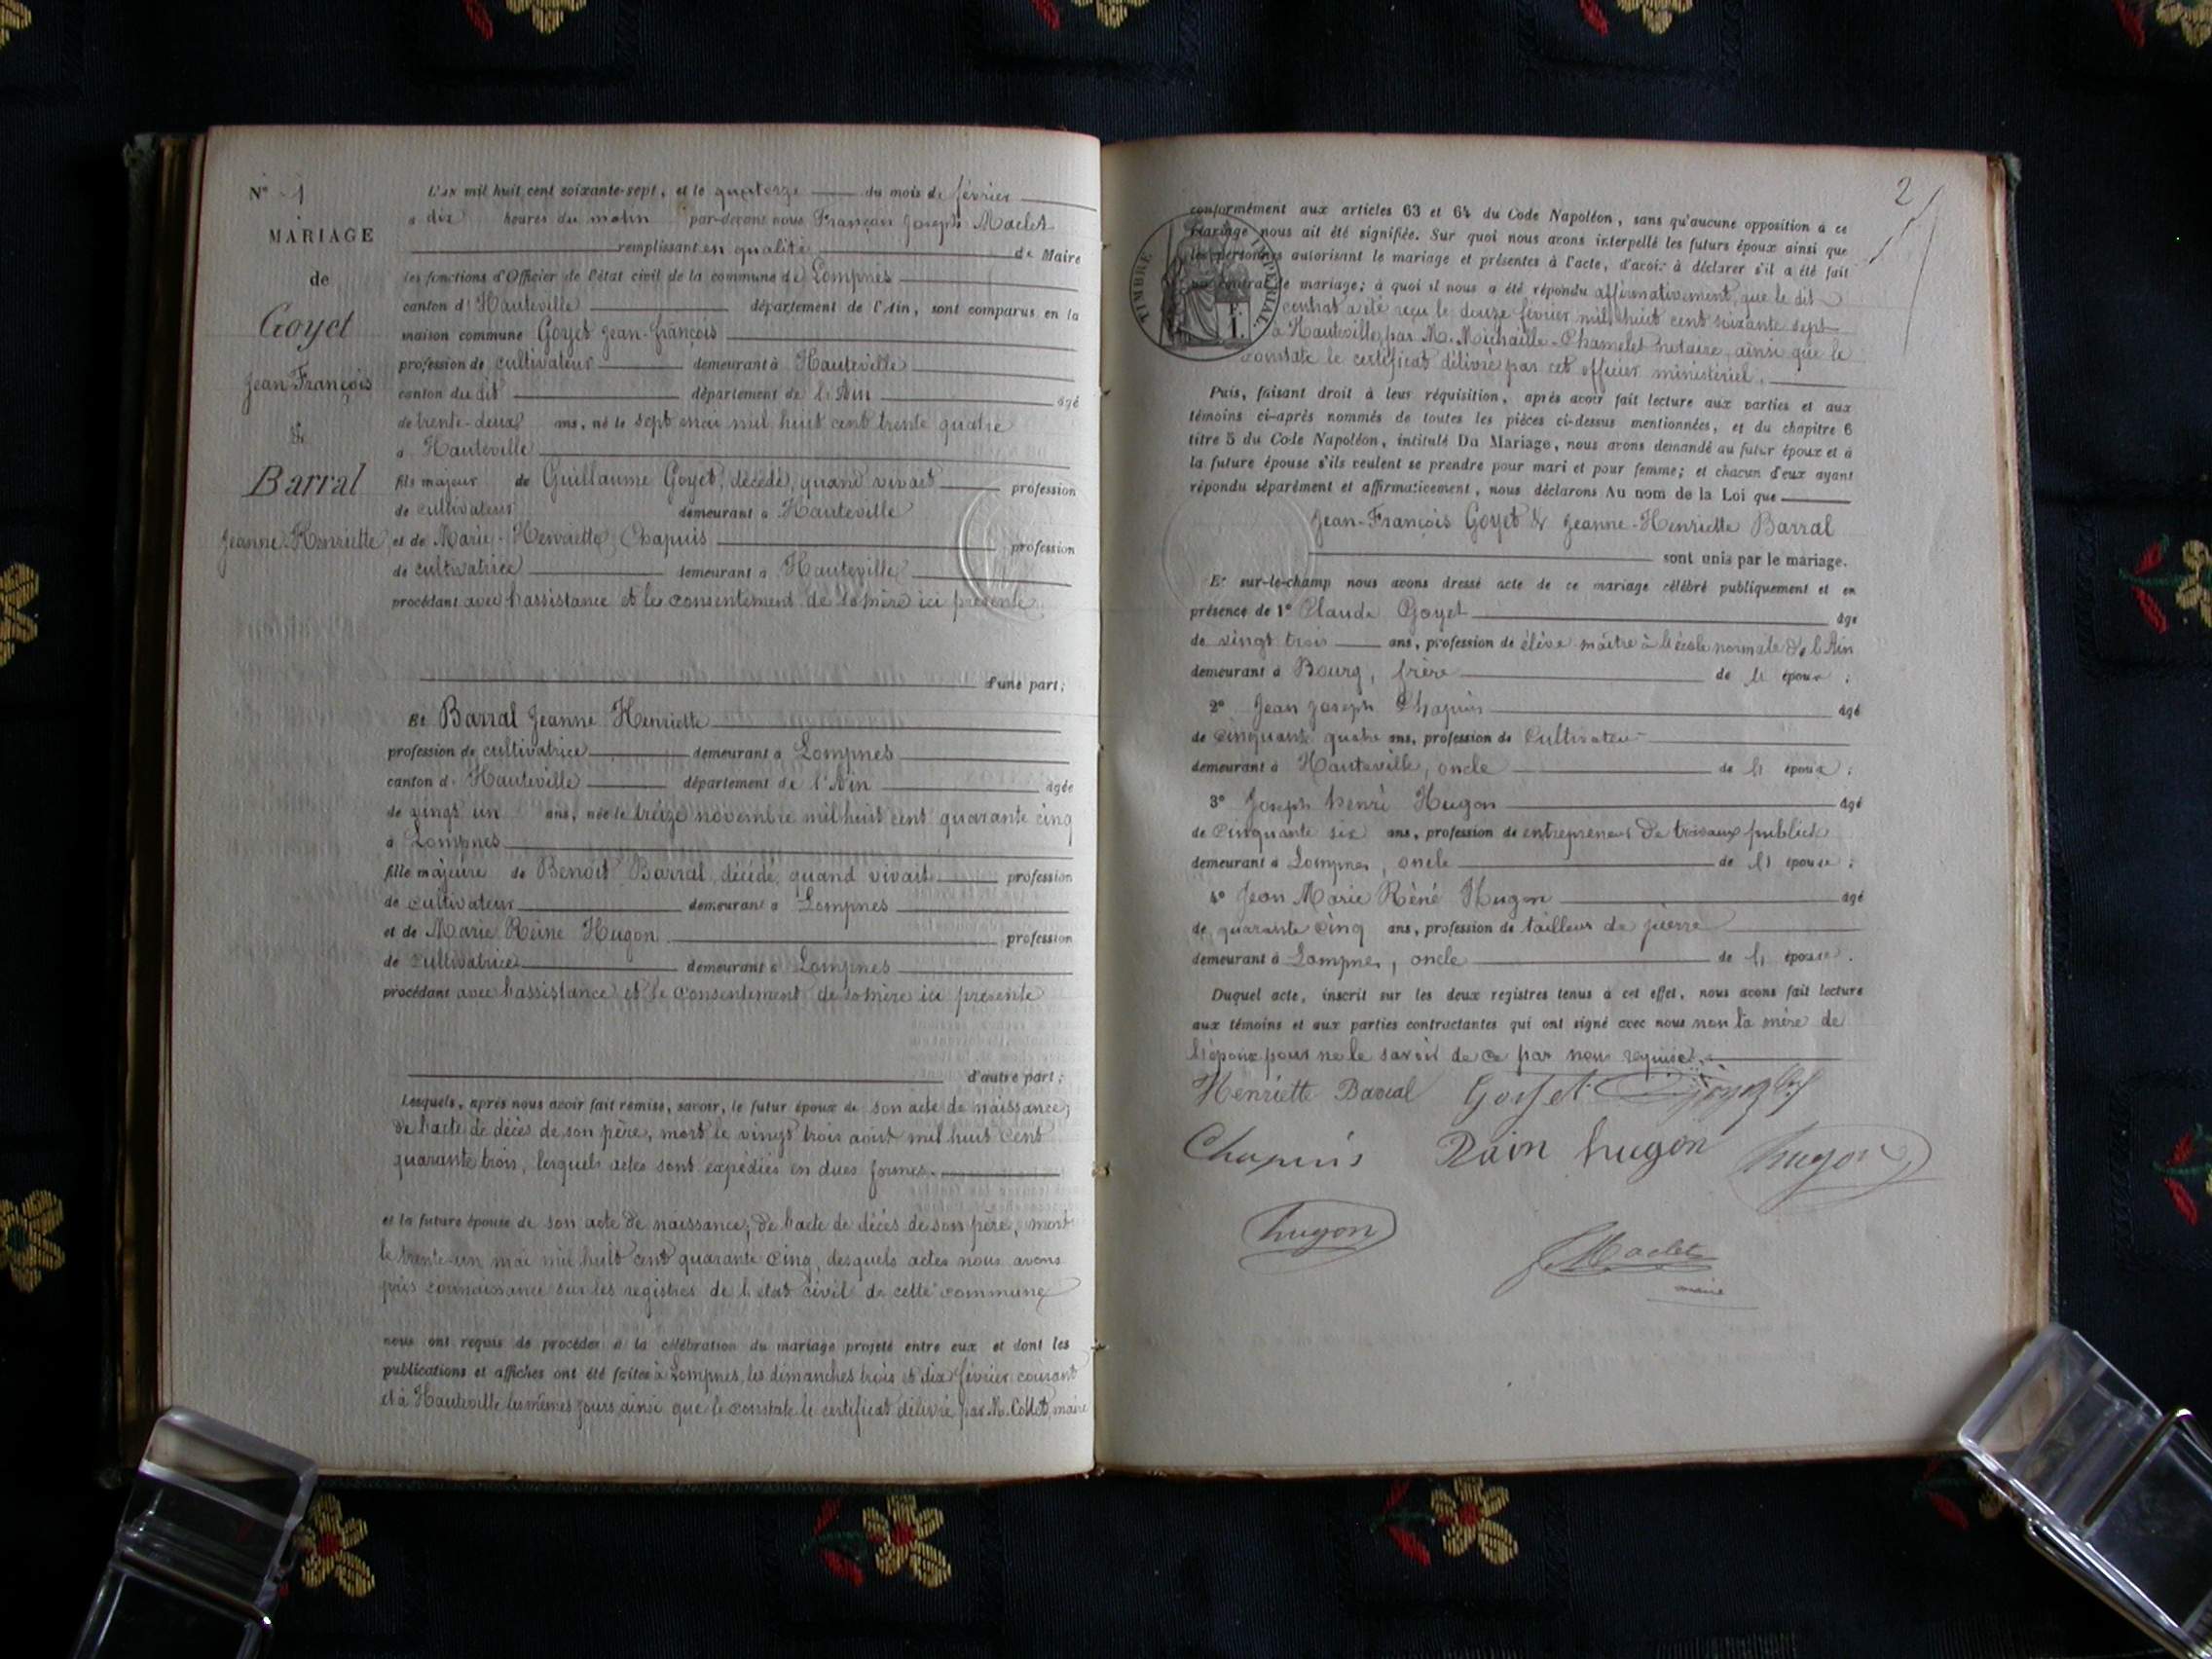 N° 1
MARIAGE
de
Goyet
Jean François
&
Barral
Jeanne Henriette
L'AN mil huit cent soixante-sept, et le quatorze du mois de février
à dix heures du matin par-devant nous François Joseph Maclet
remplissant en qualité de Maire
les fonctions d'Officier de l'état civil de la commune de Lompnes
canton d'Hauteville département de l'Ain, sont comparus en la
maison commune Goyet Jean-françois
profession de cultivateur demeurant à Hauteville
canton du dit département de l'Ain âgé
de trente-deux ans, né le sept mai mil huit cent trente quatre
à Hauteville
fils majeur de Guillaume Goyet, décédé, quand vivait profession
de cultivateur demeurant à Hauteville
et de Marie-Henriette Chapuis profession
de cultivatrice demeurant à Hauteville
procédant avec l'assistance et le consentement de sa mère ici présente
d'une part;
Et Barral Jeanne Henriette
profession de cultivatrice demeurant à Lompnes
canton d'Hauteville département de l'Ain âgée
de vingt un ans, née le treize novembre mil huit cent quarante cinq
à Lompnes
fille majeure de Benoît Barral, décédé, quand vivait profession
de cultivateur demeurant à Lompnes
et de Marie Reine Hugon profession
de cultivatrice demeurant à Lompnes
procédant avec l'assistance et le consentement de sa mère ici présente
d'autre part;
Lesquels, après nous avoir fait remise, savoir, le futur époux de son acte de naissance;
de l'acte de décès de son père, mort le vingt trois août mil huit cent
quarante trois, lesquels actes sont expédiés en dues formes.
et la future épouse de son acte de naissance; de l'acte de décès de son père, mort
le trente-un mai mil huit cent quarante cinq, desquels actes nous avons
pris connaissance sur les registres de l'état civil de cette commune
nous ont requis de procéder à la célébration du mariage projeté entre eux et dont les
publications et affiches ont été faites à Lompnes, les dimanches trois et dix février courant
et à Hauteville les mêmes jours ainsi que le constate le certificat délivré par M. Collet, maire
2
TIMBRE IMPÉRIAL
conformément aux articles 63 et 64 du Code Napoléon, sans qu'aucune opposition à ce
mariage nous ait été signifiée. Sur quoi nous avons interpellé les futurs époux ainsi que
les personnes autorisant le mariage et présentes à l'acte, d'avoir à déclarer s'il a été fait
un contrat de mariage; à quoi il nous a été répondu affirmativement, que le dit
contrat a été reçu le douze février mil huit cent soixante sept
à Hauteville, par M. Michaille-Chamelet notaire, ainsi que le
constate le certificat délivré par cet officier ministériel.
Puis, faisant droit à leur réquisition, après avoir fait lecture aux parties et aux
témoins ci-après nommés de toutes les pièces ci-dessus mentionnées, et du chapitre 6
titre 5 du Code Napoléon, intitulé Du Mariage, nous avons demandé au futur époux et à
la future épouse s'ils veulent se prendre pour mari et pour femme; et chacun d'eux ayant
répondu séparément et affirmativement, nous déclarons Au nom de la Loi que
Jean-François Goyet & Jeanne-Henriette Barral
sont unis par le mariage.
Et sur-le-champ nous avons dressé acte de ce mariage célébré publiquement et en
présence de 1° Claude Goyet âgé
de vingt trois ans, profession de élève maître à l'école normale de l'Ain
demeurant à Bourg, frère de l'époux;
2° Jean Joseph Chapuis âgé
de cinquante quatre ans, profession de cultivateur
demeurant à Hauteville, oncle de l'époux;
3° Joseph henri Hugon âgé
de cinquante six ans, profession de entrepreneur de travaux publics
demeurant à Lompnes, oncle de l'épouse;
4° Jean Marie Réné Hugon âgé
de quarante cinq ans, profession de tailleur de pierre
demeurant à Lompnes, oncle de l'épouse.
Duquel acte, inscrit sur les deux registres tenus à cet effet, nous avons fait lecture
aux témoins et aux parties contractantes qui ont signé avec nous non la mère de
l'époux pour ne le savoir de ce par nous requise.
Henriette Baral Goyet
Chapuis Rain hugon hugon
hugon
Maclet
maire